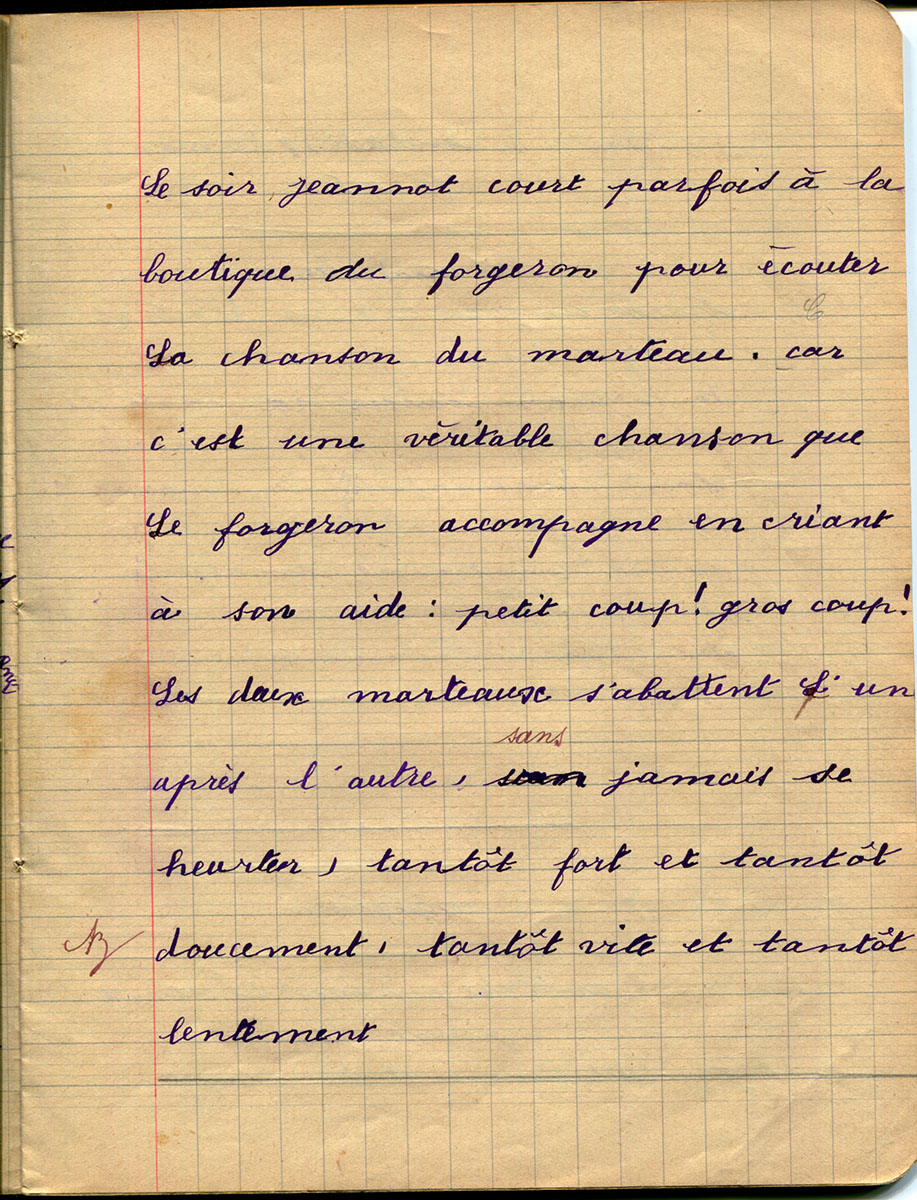 Le soir, jeannot court parfois à la
boutique du forgeron pour écouter
C
La chanson du marteau. car
c'est une véritable chanson que
Le forgeron accompagne en criant
à son aide : petit coup! gros coup!
Les deux marteaux s'abattent L'un
sans
après l'autre, jamais se
heurter, tantôt fort et tantôt
doucement, tantôt vite et tantôt
lentement